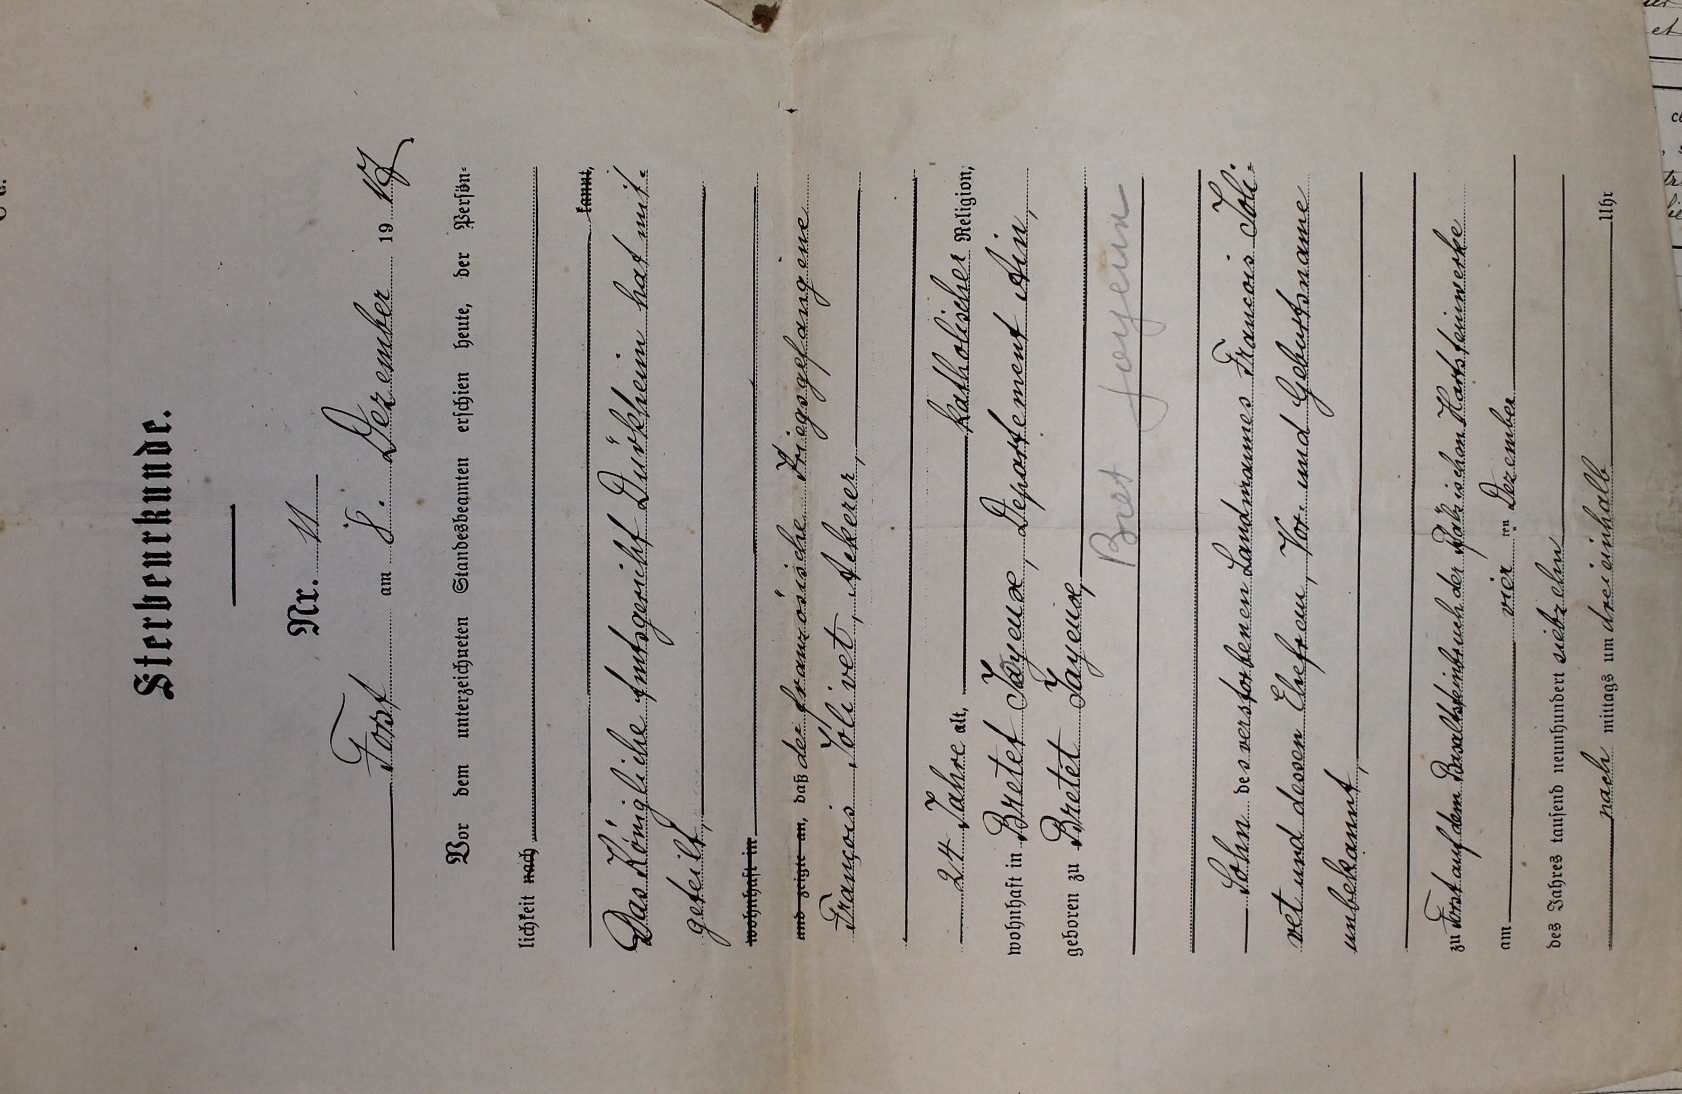 Sterbeurkunde.
Nr. 11
Forst am 8. Dezember 1917
Vor dem unterzeichneten Standesbeamten erschien heute, der Persön-
lichkeit nach
kannt,
Das Königliche Amtsgericht Dürkheim hat mit-
geteilt,
wohnhaft in
und zeigte an, daß der französische Kriegsgefangene
François Jolivet, Ackerer,
24 Jahre alt, katholischer Religion,
wohnhaft in Bretet Jayeux, Departement Ain,
geboren zu Bretet Jayeux,
Bret Joyeux
Sohn des verstorbenen Landmannes Francois Joli-
vet und dessen Ehefrau, Vor- und Geburtsname
unbekannt,
zu Forst auf dem Basaltsteinbruch der Pfälzischen Hartsteinwerke
am vier ten Dezember
des Jahres tausend neunhundert siebzehn
nach mittags um dreieinhalb Uhr